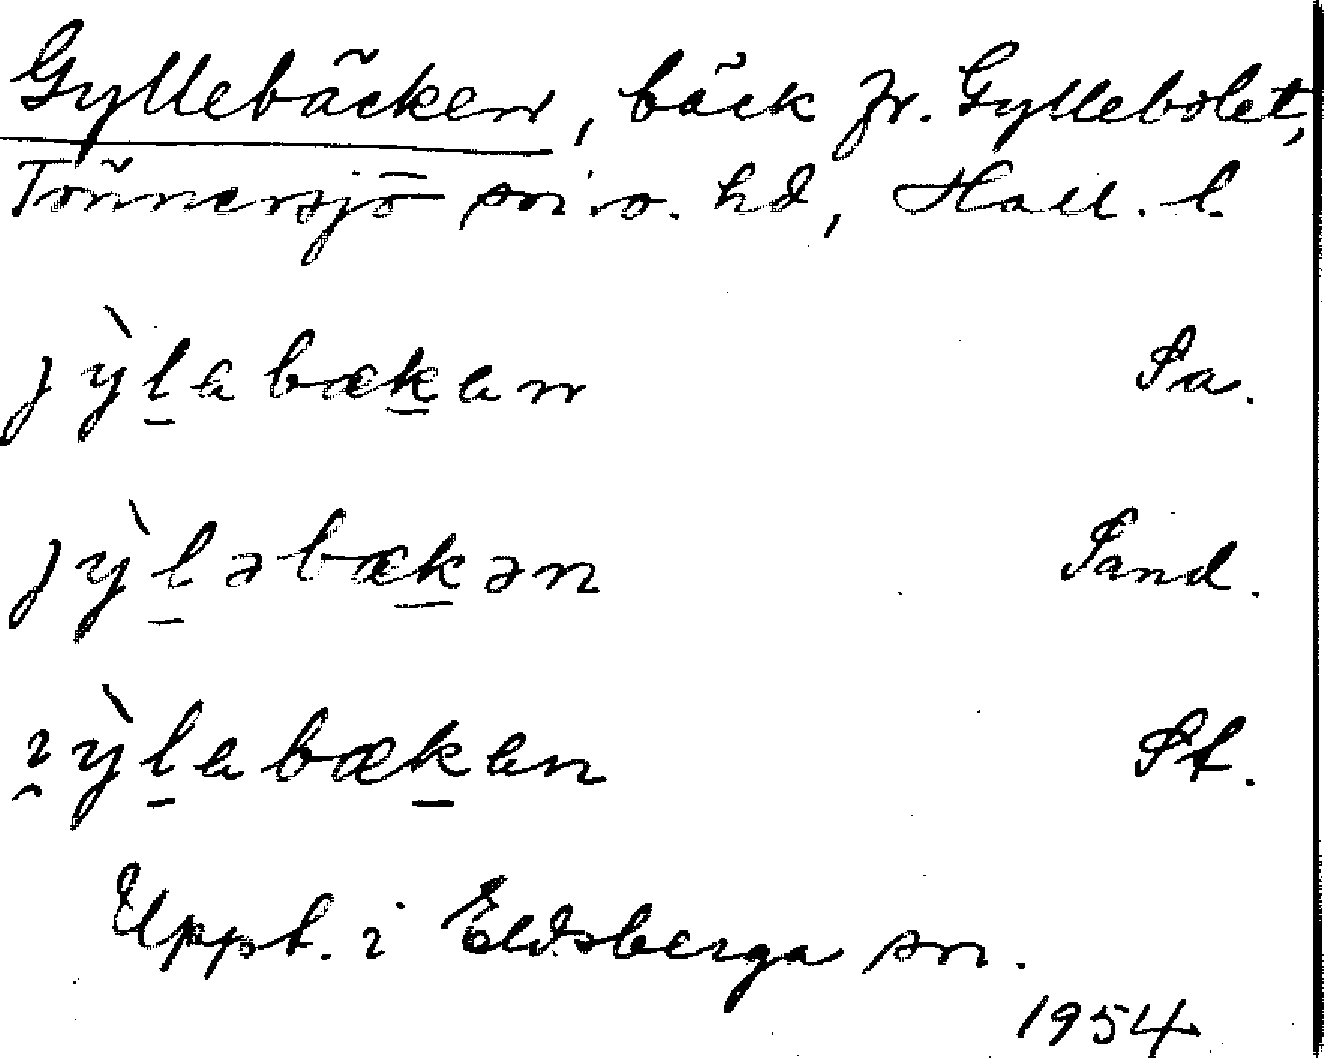 Gyllebäcken, bäck fr. Gyllebolet,
Tönnersjö sn o. hd, Hall. l.
jỳl̠abæk̠an Sa.
jỳl̠əbæk̠ən Sand.
ı̯ỳl̠abæk̠an St.
Uppt. i Eldsberga sn.
1954